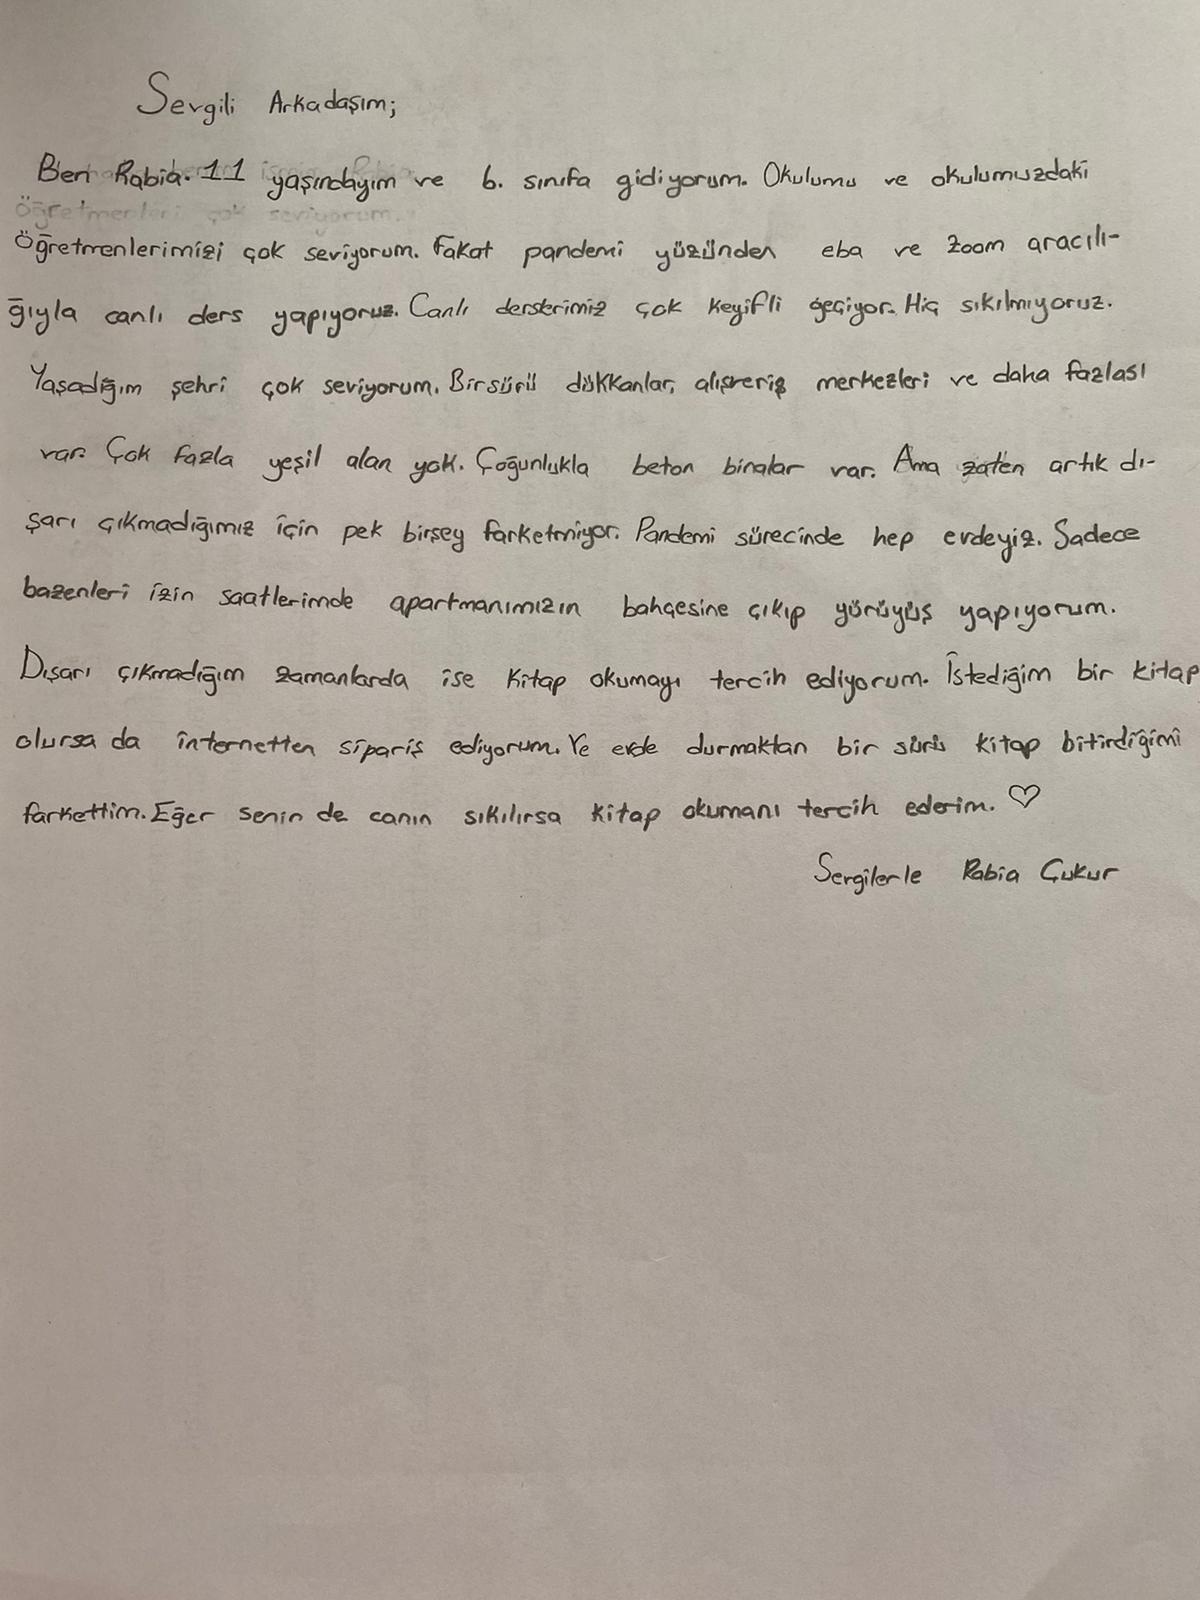 Sevgili Arkadaşım;
Ben Rabia. 11 yaşındayım ve 6. sınıfa gidiyorum. Okulumu ve okulumuzdaki
Öğretmenlerimizi çok seviyorum. Fakat pandemi yüzünden eba ve zoom aracılı-
ğıyla canlı ders yapıyoruz. Canlı derslerimiz çok keyifli geçiyor. Hiç sıkılmıyoruz.
Yaşadığım şehri çok seviyorum. Birsürü dükkanlar, alışveriş merkezleri ve daha fazlası
var. Çok fazla yeşil alan yok. Çoğunlukla beton binalar var. Ama zaten artık dı-
şarı çıkmadığımız için pek birşey farketmiyor. Pandemi sürecinde hep evdeyiz. Sadece
bazenleri izin saatlerimde apartmanımızın bahçesine çıkıp yürüyüş yapıyorum.
Dışarı çıkmadığım zamanlarda ise kitap okumayı tercih ediyorum. İstediğim bir kitap
olursa da internetten sipariş ediyorum. Ve evde durmaktan bir sürü kitap bitirdiğimi
farkettim. Eğer senin de canın sıkılırsa kitap okumanı tercih ederim. ♡
Sevgilerle Rabia Çukur